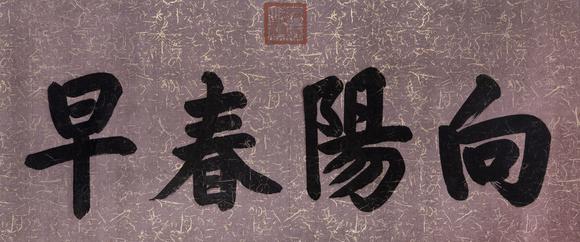 向陽春早